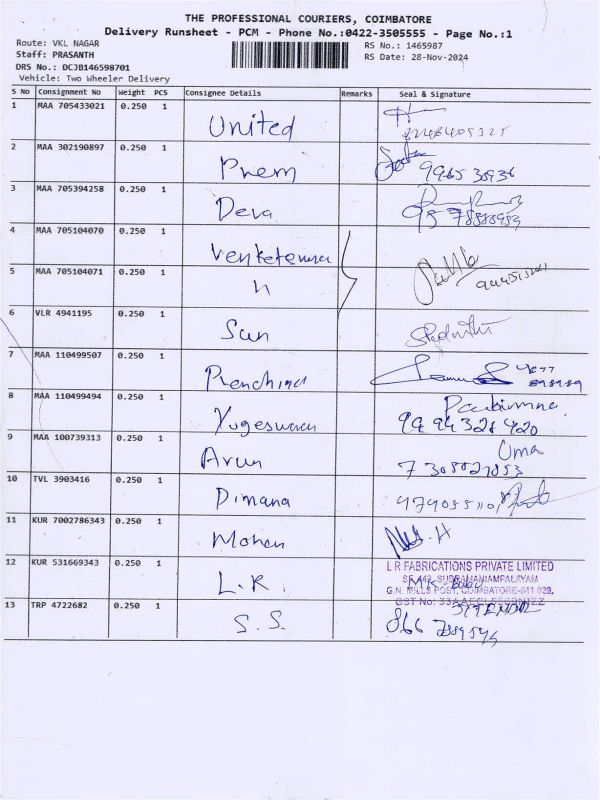 THE PROFESSIONAL COURIERS, COIMBATORE
Delivery Runsheet - PCM - Phone No.:0422-3505555 - Page No.:1
Route: VKL NAGAR
RS No.: 1465987
Staff: PRASANTH
RS Date: 28-Nov-2024
DRS No.: DCJB146598701
Vehicle: Two Wheeler Delivery
S No Consignment No Weight PCS Consignee Details Remarks Seal & Signature
1 MAA 705433021 0.250 1 United
2 MAA 302190897 0.250 1 Prem
3 MAA 705394258 0.250 1 Deva
4 MAA 705104070 0.250 1
5 MAA 705104071 0.250 1 "
6 VLR 4941195 0.250 1 San
7 MAA 110499507 0.250 1
8 MAA 110499494 0.250 1 Yogeswaran 9994328420
9 MAA 100739313 0.250 1 Arun Uma
10 TVL 3903416 0.250 1 Dimana
11 KUR 7002786343 0.250 1 Mohan
12 KUR 531669343 0.250 1 L.R. L R FABRICATIONS PRIVATE LIMITED
SUBRAMANIAMPALAYAM
G.N. MILLS POST, COIMBATORE-641 029.
GST No:
13 TRP 4722682 0.250 1 S.S.